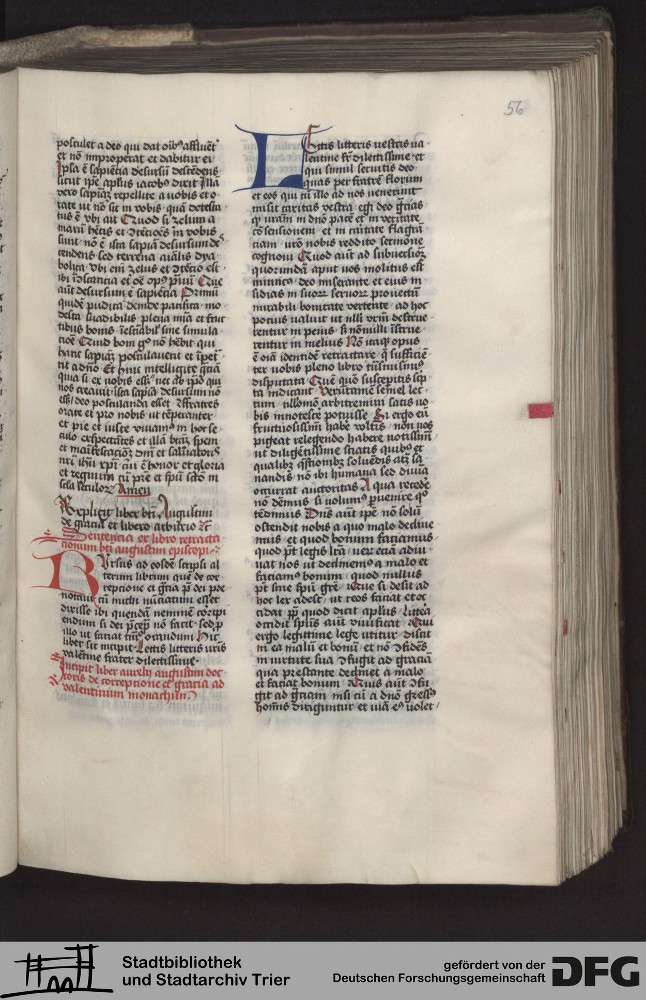 56
postulet a deo qui dat oib9 affluent
et no improperat et dabitur ei
Ipsa e sapiecia desursu descedens
sicut ipe aplus iacob9 dicit Illa
vero sapiam repellite a uobis et o
rate ut no sit in vobis qua detesta
tus e vbi ait Quod si zelum a
maru hetis et
sunt no e ista sapia desursum de
tendens sed terrena aialis dya
bolica vbi em zelus et
ibi et oe op9 prauu Que
aut desursum e sapiecia Primu
quide pudica deinde pacifica mo
desta suadibilis plena mia et fruc
tibus bonis sine simula
tioe Quid boni go no hebit qui
hanc sapiam postulauerit et
rit a dno Et hinc intelligite gram
quia si ex uobis esset no ab ipo qui
nos creauit ista sapia desursum no
esset deo postulanda esset fratres
orate et pro nobis ut teperanter
et pie et iuste viuam9 in hoc se
culo expectates et illa beam spem
et manifestacioe dni et saluatoris
nri ihu xpi cui e honor et gloria
et regnum cu pre et spu scto in
scla sclor Amen
Explicit liber bti Augustini
de gracia et libero arbitrio
Sentencia ex libro retracta
tionum bti augustini episcopi
Rursus ad eosde scripsi al
terum librum que de cor
reptione et gra
notaui cu michi nuciatum esset
dixisse ibi quenda nemine corripi
endum si dei precep no facit sed p
illo ut faciat tm orandum Hic
liber sic incipit Lectis litteris uris
valetine frater dilectissime
Incipit liber aurelij augustini doc
toris de correptione et gracia ad
valentinum monachum
Lectis litteris uestris va
lentine fr dilectissime et
qui simul seruitis deo
quas per fratre florum
et eos qui cu illo ad nos uenerunt
misit caritas vestra egi deo gracias
q uram in dno pace et in veritate
cosensionem et in caritate flagra
ciam uro nobis reddito sermone
cognoui Quod aut ad subuersioe
quorunda aput uos molitus est
inimic9 deo miserante et eius in
sidias in suor seruor prouectu
mirabili bonitate vertente ad hoc
potius ualuit ut nlli vrm destrue
rentur in peius s nonnulli istrue
rentur in melius No itaq opus
e oia identide retractare q sufficie
ter uobis pleno libro
disputata Que quo susceperitis scp
ta indicant Verutamen semel lec
tum nllomo arbitremini satis uo
bis innotesce potuisse Si ergo eu
fructuosissim habe voltis non uos
pigeat relegendo habere notissim
ut diligetissime sciatis quib9 et
qualib9 qstionib9 soluedis atq sa
nandis no ibi humana sed diuina
occurrat auctoritas A qua recede
no dem9 si volum9 puenire quo
tedimus Dns aut ipe no solu
ostendit nobis a quo malo decline
mus et quod bonum faciamus
quod pt legis lra ver etia adiu
uat nos ut declinem9 a malo et
faciam9 bonum quod nullus
pt sine spu gre Que si desit ad
hoc lex adest ut reos faciat et oc
cidat pp quod dicit aplus littera
occidit spirit9 aut viuificat Qui
ergo legittime lege utitur discit
in ea malu et bonu et no
in virtute sua fugit ad gracia
qua prestante declinet a malo
et faciat bonum Quis aut
git ad graciam nisi cu a dno gress9
hominis diriguntur et uia ei9 uolet
Stadtbibliothek
und Stadtarchiv Trier
gefördert von der
Deutschen Forschungsgemeinschaft
DFG